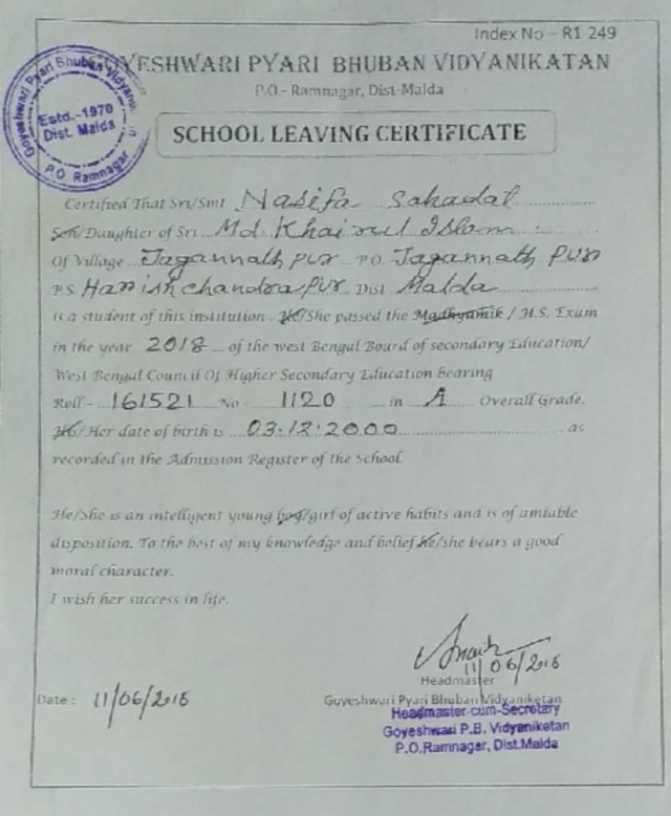 Index No - R1-249
GOYESHWARI PYARI BHUBAN VIDYANIKATAN
P.O.- Ramnagar, Dist-Malda
Goyeshwari Pyari Bhuban Vidyanik
Estd.-1970
Dist. Malda
P.O. Ramnagar
SCHOOL LEAVING CERTIFICATE
Certified That Sri/Smt Nasifa Sahadat
Son/Daughter of Sri Md. Khairul Islam
Of Village Jagannathpur P.O. Jagannathpur
P.S. Harrishchandrapur Dist Malda
is a student of this institution. He/She passed the Madhyamik / H.S. Exam
in the year 2018 of the west Bengal Board of secondary Education/
West Bengal Council Of Higher Secondary Education bearing
Roll - 161521 No - 1120 in A Overall Grade.
He/Her date of birth is 03.12.2000 as
recorded in the Admission Register of the School.
He/She is an intelligent young boy/girl of active habits and is of amiable
disposition. To the best of my knowledge and belief he/she bears a good
moral character.
I wish her success in life.
11/06/2018
Headmaster
Date : 11/06/2018 Goyeshwari Pyari Bhuban Vidyaniketan
Headmaster-cum-Secretary
Goyeshwari P.B. Vidyaniketan
P.O.Ramnagar, Dist.Malda